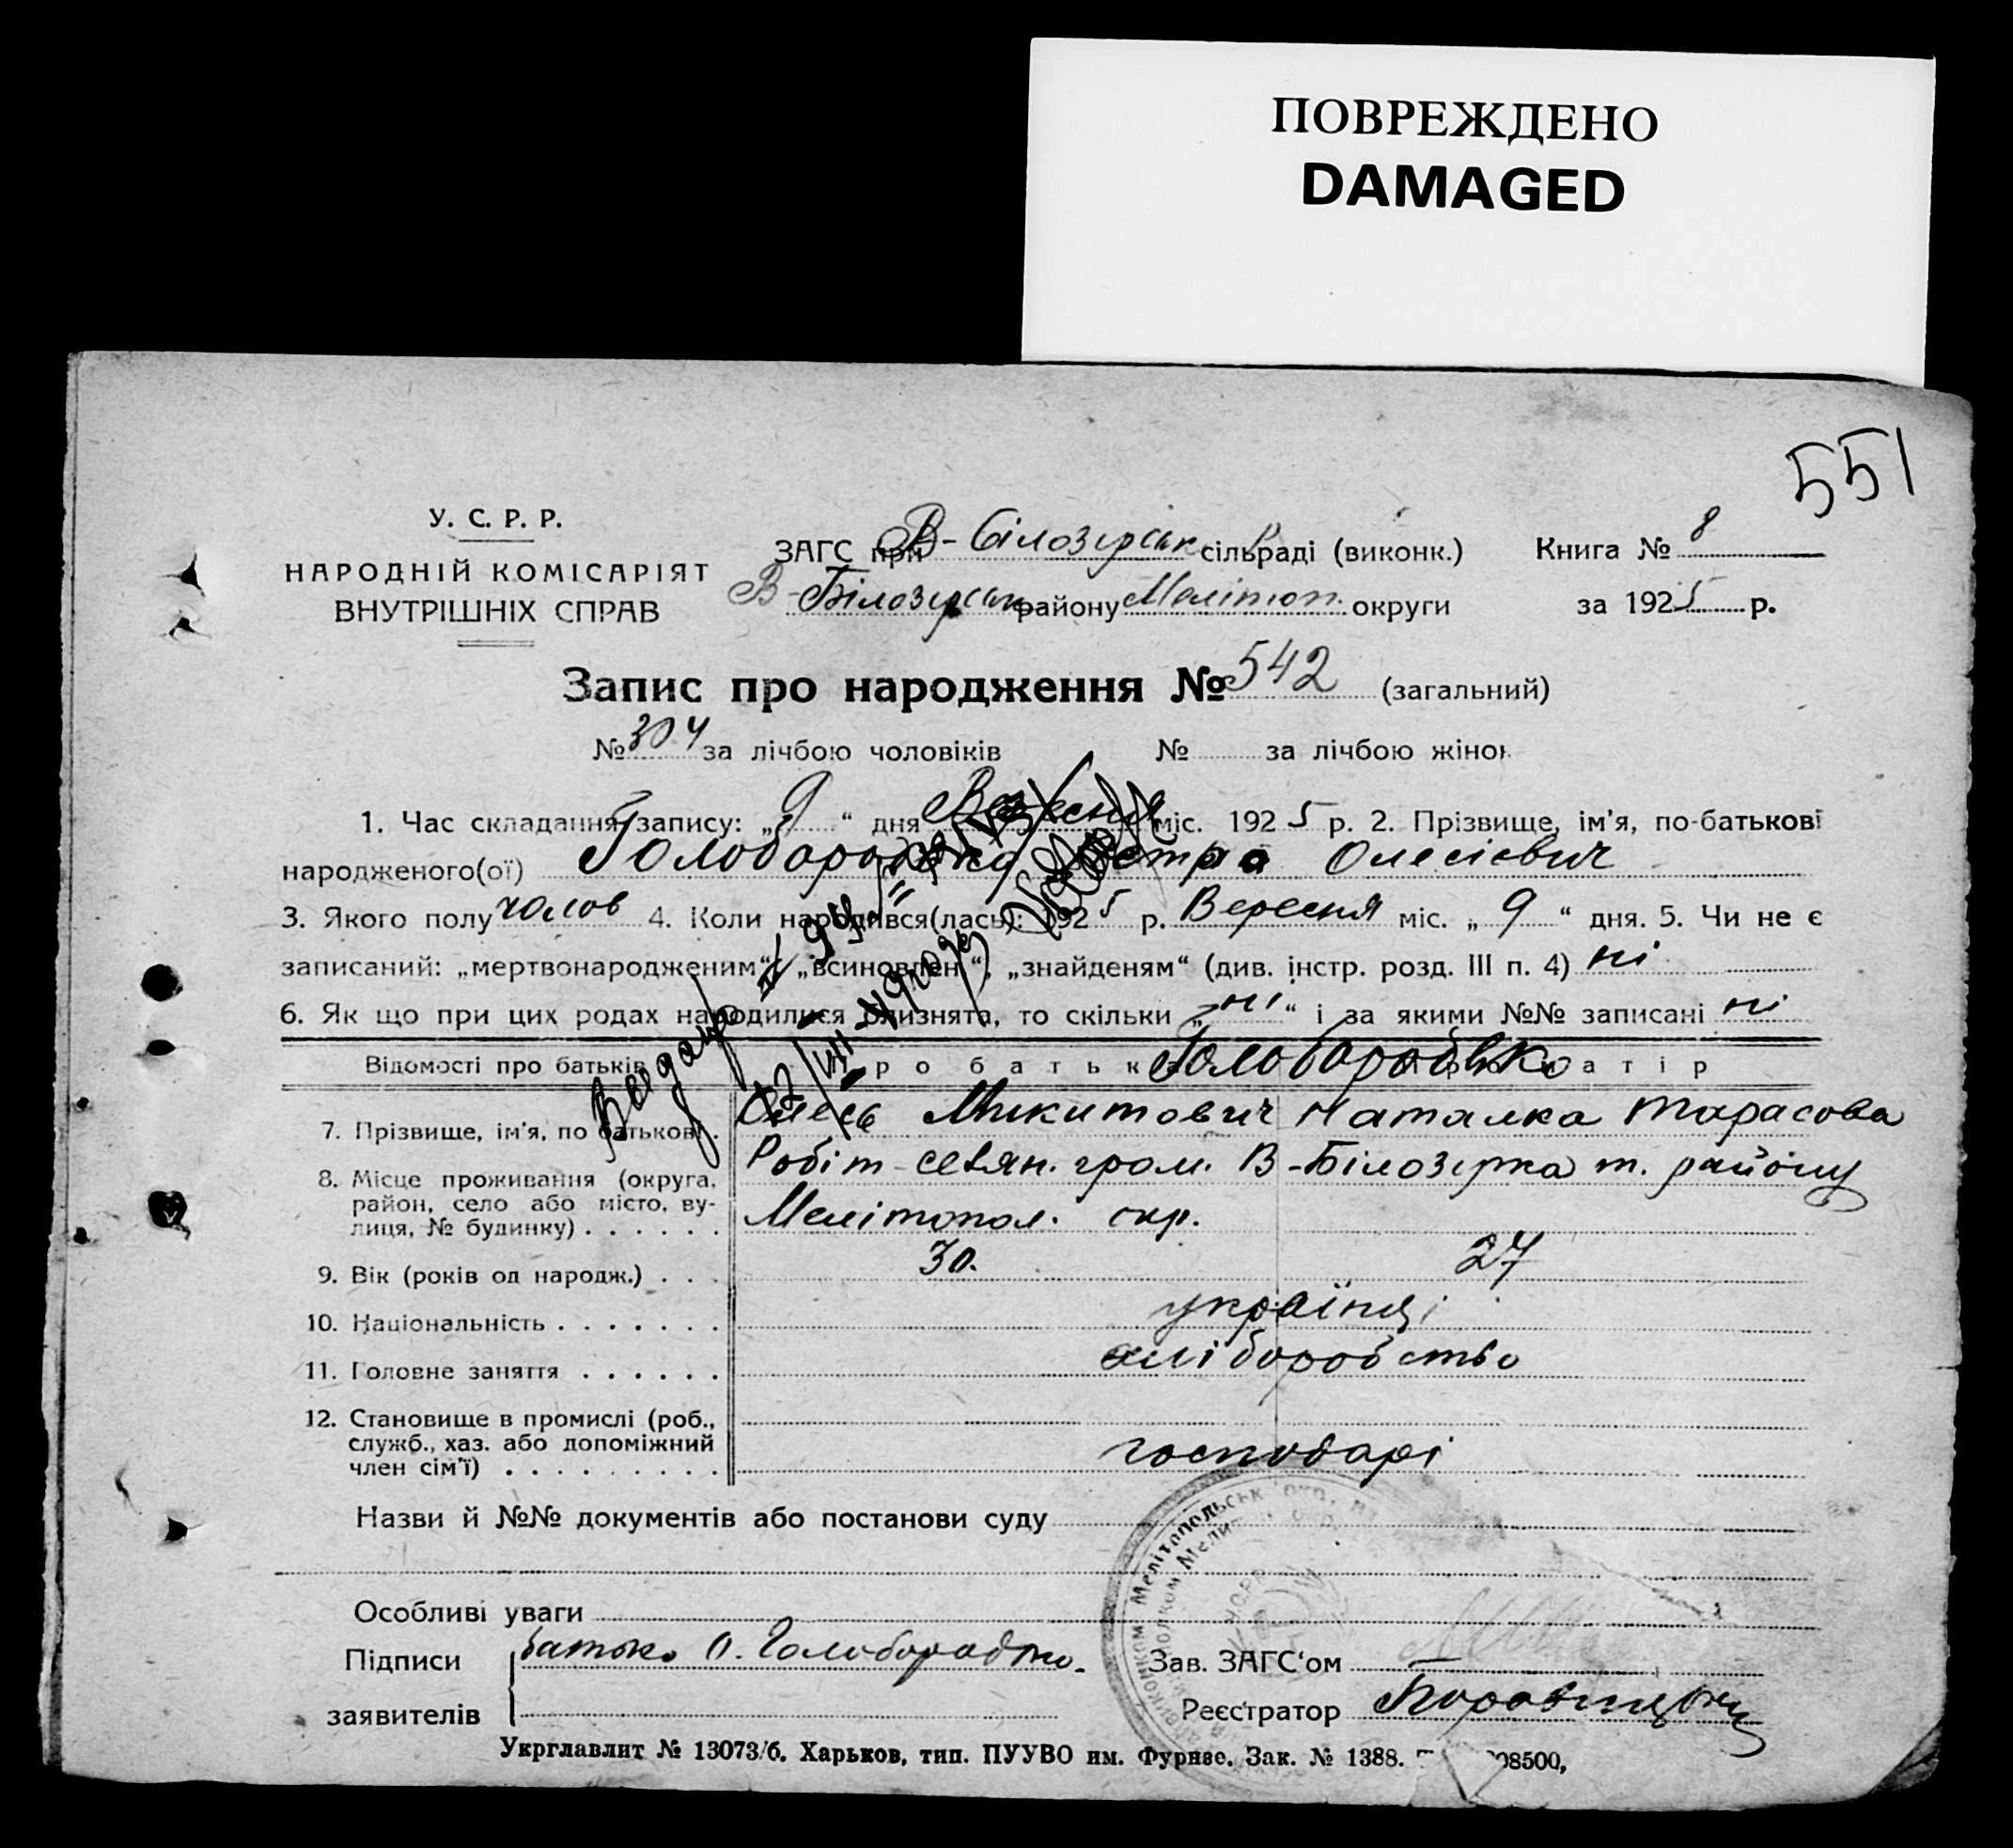 ПОВРЕЖДЕНО
DAMAGED
551
У. С. Р. Р.
НАРОДНІЙ КОМІСАРІЯТ
ВНУТРІШНІХ СПРАВ
ЗАГС при В-Білозірськ сільраді (виконк.) Книга № 8
В-Білозірськ району Мелітоп. округи за 1925 р.
Запис про народження № 542 (загальний)
№ 304 за лічбою чоловіків № за лічбою жінок
1. Час складання запису: „9“ дня Вересня міс. 1925 р. 2. Прізвище, ім'я, по-батькові
народженого(ої) Голобородько Петро Олесієвич
3. Якого полу чолов 4. Коли народився(лась): 1925 р. Вересня міс. „9“ дня. 5. Чи не є
записаний: „мертвонародженим“, „всиновлен.“, „знайденям“ (див. інстр. розд. III п. 4) ні
6. Як що при цих родах народилися близнята, то скільки „ні“ і за якими №№ записані ні
Відомості про батьків Про батька Голобородько Про матір
7. Прізвище, ім'я, по батькові. Олесь Микитович Наталка Тарасова
8. Місце проживання (округа, Робіт-селян. гром. В-Білозірка т. району
район, село або місто, ву-
лиця, № будинку) . . . . . . Мелітопол. окр.
9. Вік (років од народж.) . . . 30. 27
10. Національність . . . . . . . українці
11. Головне заняття . . . . . . хліборобство
12. Становище в промислі (роб.,
служб., хаз. або допоміжний
член сім'ї) . . . . . . . . . господарі
Назви й №№ документів або постанови суду
Особливі уваги
Підписи батько О. Голобородько.
Зав. ЗАГС'ом
заявителів
Реєстратор
Укрглавлит № 13073/б. Харьков, тип. ПУУВО им. Фрунзе. Зак. № 1388. 08500,